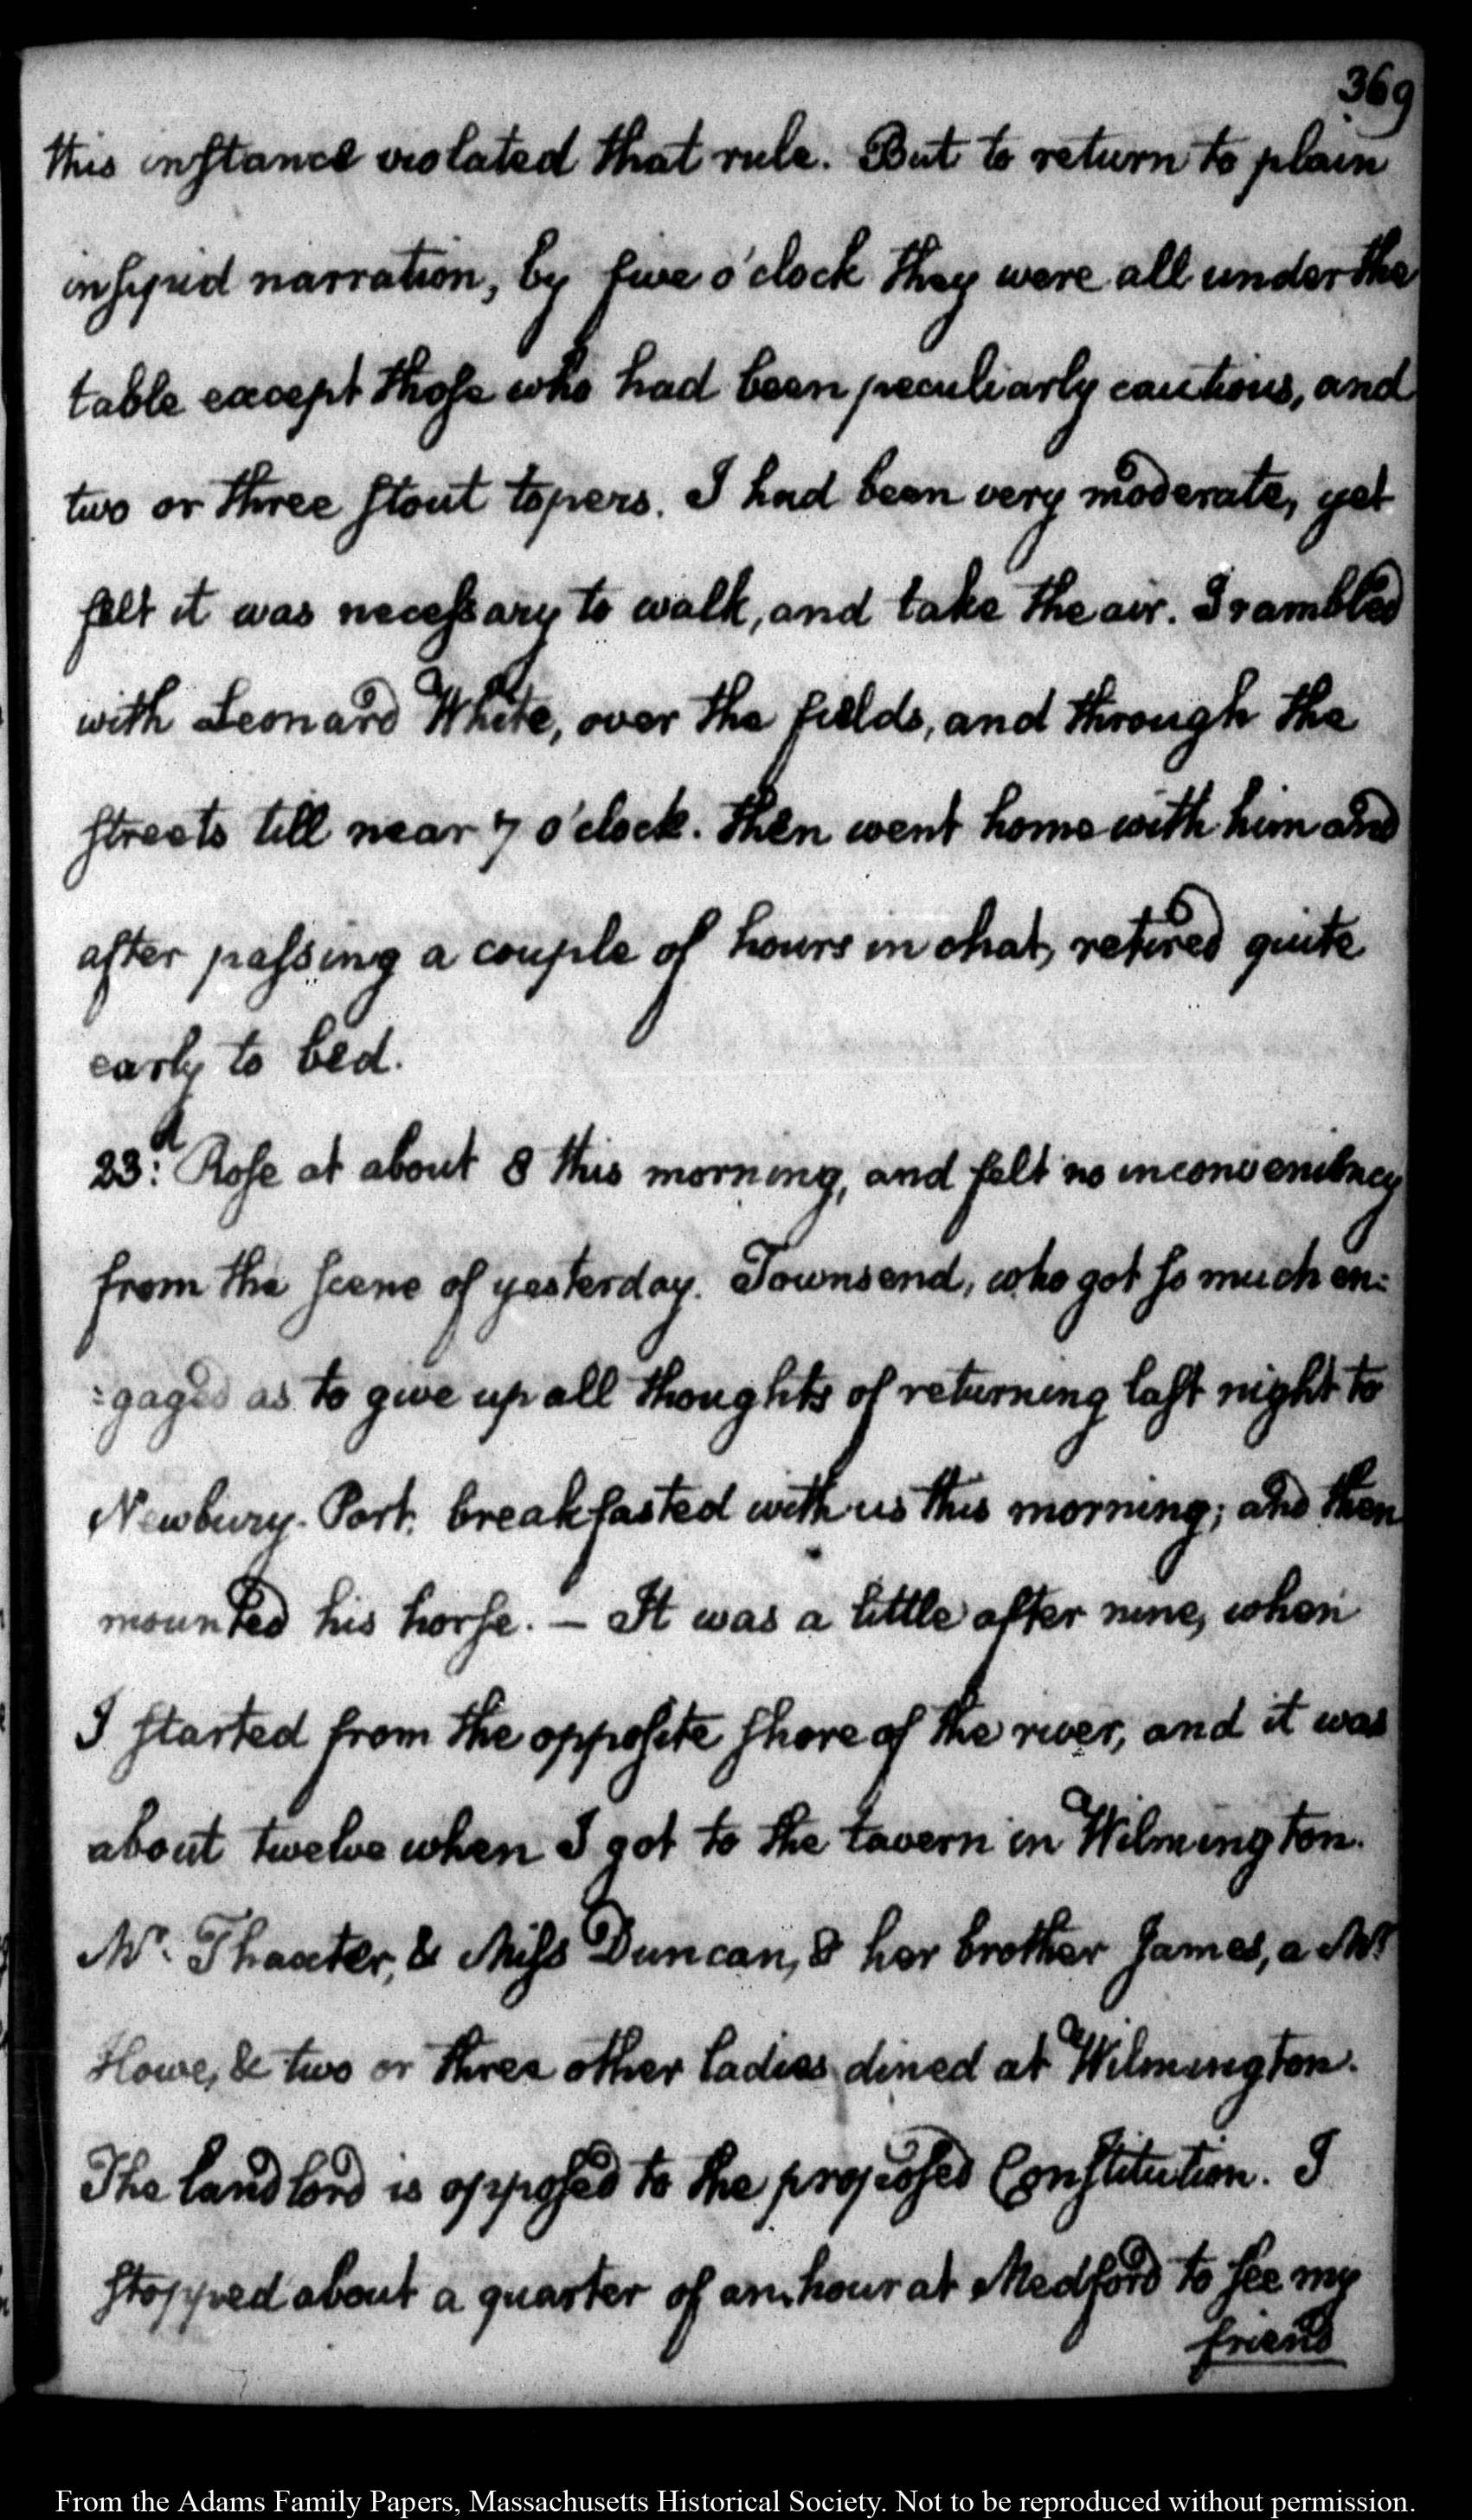 369
this instance violated that rule. But to return to plain
insipid narration, by five o'clock they were all under the
table except those who had been peculiarly cautious, and
two or three stout topers. I had been very moderate, yet
felt it was necessary to walk, and take the air. I rambled
with Leonard White, over the fields, and through the
streets till near 7 o'clock. Then went home with him and
after passing a couple of hours in chat, retired quite
early to bed.
23.d Rose at about 8 this morning, and felt no inconveniency
from the scene of yesterday. Townsend, who got so much en:
:gaged as to give up all thoughts of returning last night to
Newbury-Port, breakfasted with us this morning; and then
mounted his horse. — It was a little after nine, when
I started from the opposite shore of the river, and it was
about twelve when I got to the tavern in Wilmington.
Mr. Thaxter, & Miss Duncan, & her brother James, a Mr
Howe, & two or three other ladies dined at Wilmington.
The landlord is opposed to the proposed Constitution. I
stopped about a quarter of an hour at Medford to see my
friend
From the Adams Family Papers, Massachusetts Historical Society. Not to be reproduced without permission.